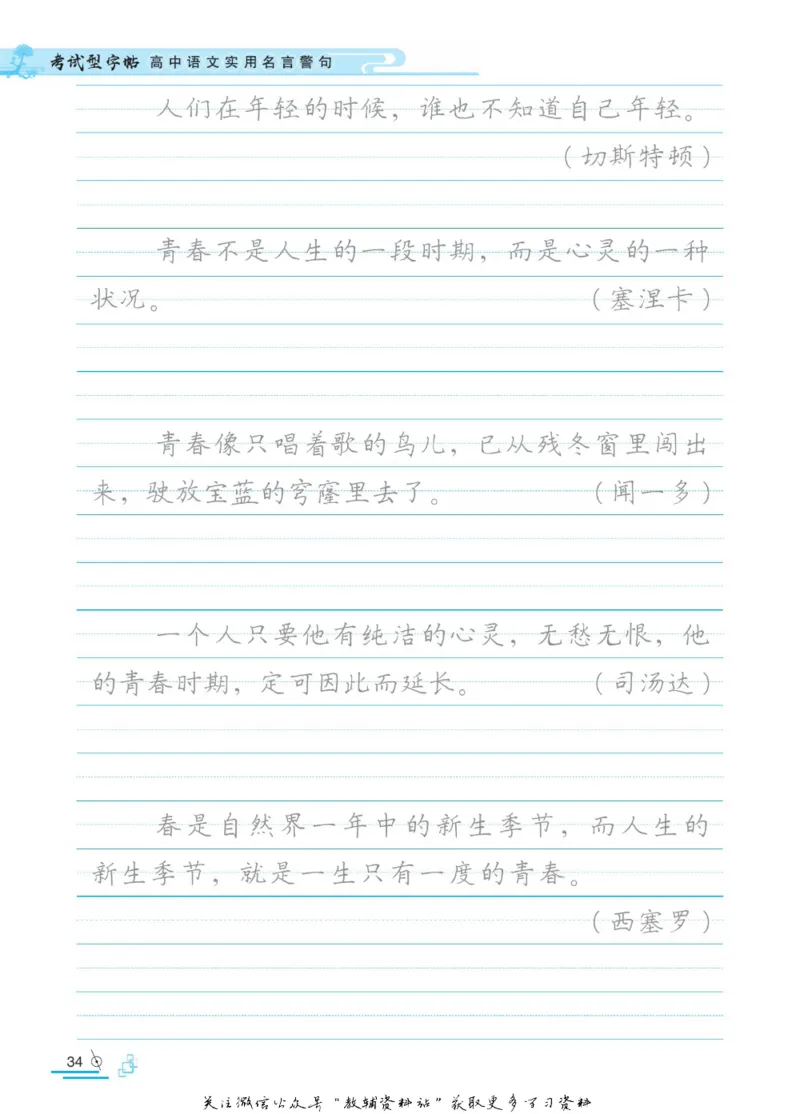 考试型字帖 高中语文实用名言警句
人们在年轻的时候，谁也不知道自己年轻。
（切斯特顿）
青春不是人生的一段时期，而是心灵的一种
状况。（塞涅卡）
青春像只唱着歌的鸟儿，已从残冬窗里闯出
来，驶放宝蓝的穹窿里去了。（闻一多）
一个人只要他有纯洁的心灵，无愁无恨，他
的青春时期，定可因此而延长。（司汤达）
春是自然界一年中的新生季节，而人生的
新生季节，就是一生只有一度的青春。
（西塞罗）
34
关注微信公众号“教辅资料站”获取更多学习资料